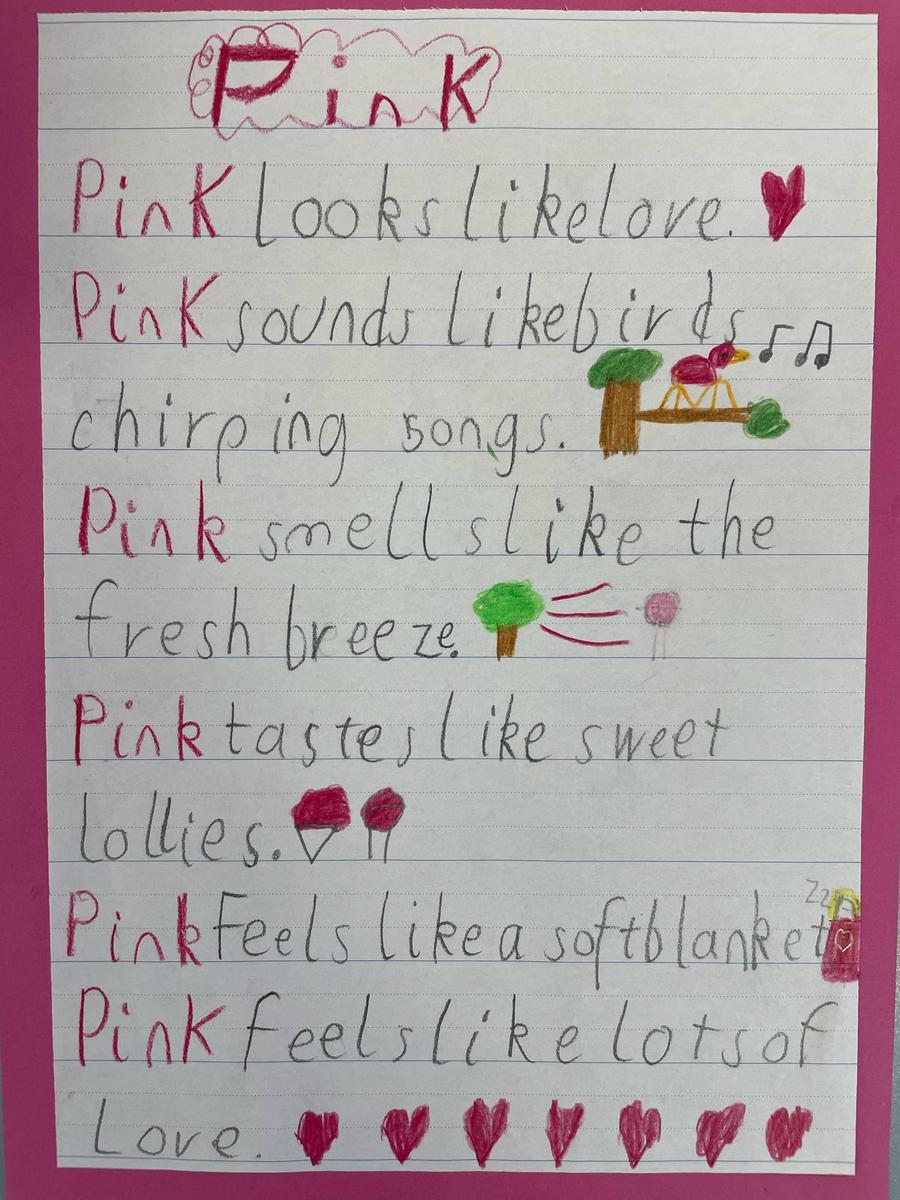 Pink
Pink looks like love.
Pink sounds like birds
chirping songs.
Pink smells like the
fresh breeze.
Pink tastes like sweet
lollies.
Pink feels like a soft blanket
Zz
Pink feels like lots of
Love.